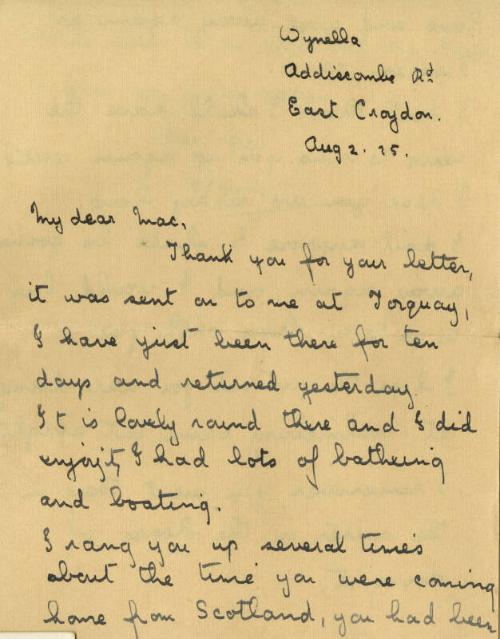 Wynella
Addiscombe Rd
East Croydon.
Aug 2. 25.
My dear Mac,
Thank you for your letter,
it was sent on to me at Torquay,
I have just been there for ten
days and returned yesterday.
It is lovely round there and I did
enjoy it, I had lots of bathing
and boating.
I rang you up several times
about the time you were coming
home from Scotland, you had been